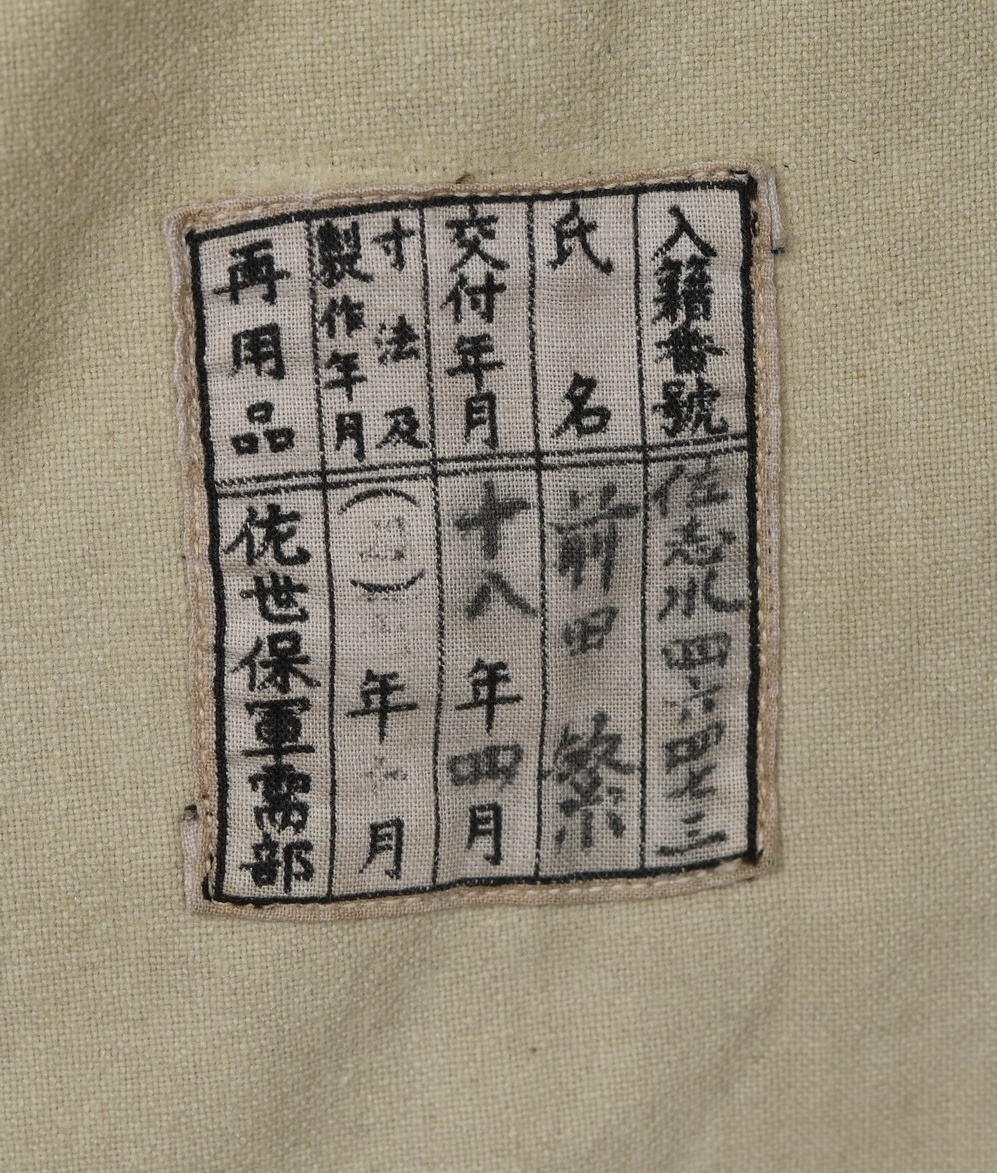 入籍番號
佐志水四六四七三
氏名
前田 繁
交付年月
十八年四月
寸法及
製作年月
( )
年 月
再用品
佐世保軍需部